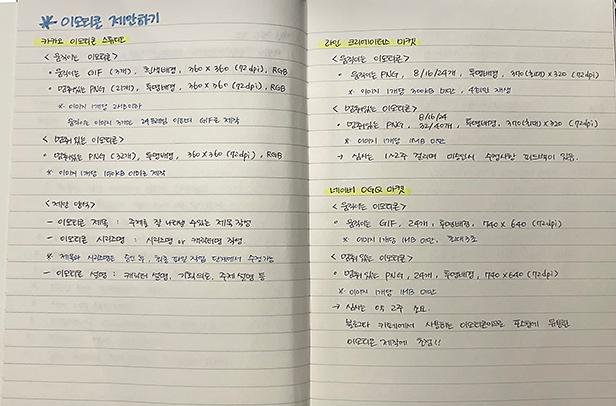 * 이모티콘 제안하기
카카오 이모티콘 스튜디오
< 움직이는 이모티콘 >
• 움직이는 GIF (3개), 흰색배경, 360 x 360 (72dpi), RGB
• 멈춰있는 PNG (21개), 투명배경, 360 x 360 (72dpi), RGB
※ 이미지 1개당 2MB이하
움직이는 이미지 3개는 24프레임 이하의 GIF로 제작
< 멈춰있는 이모티콘 >
• 멈춰있는 PNG (32개), 투명배경, 360 x 360 (72dpi), RGB
※ 이미지 1개당 150KB 이하로 제작
< 제안 양식 >
- 이모티콘 제목 : 주제를 잘 나타낼 수 있는 제목 작성
- 이모티콘 시리즈명 : 시리즈명 or 캐릭터명 작성
※ 제목과 시리즈명은 승인 후, 최종 파일 작업 단계에서 수정가능
- 이모티콘 설명 : 캐릭터 설명, 기획의도, 주제 설명 등
라인 크리에이터스 마켓
< 움직이는 이모티콘 >
• 움직이는 PNG, 8/16/24개, 투명배경, 320(최대) x 320 (72dpi)
※ 이미지 1개당 300KB 미만, 4초이만 재생
< 멈춰있는 이모티콘 >
• 멈춰있는 PNG, 8/16/24/32/40개, 투명배경, 370(최대) x 320 (72dpi)
※ 이미지 1개당 1MB 미만
→ 심사는 1~2주 걸리며 미승인시 수정사항 피드백이 있음.
네이버 OGQ 마켓
< 움직이는 이모티콘 >
• 움직이는 GIF, 24개, 투명배경, 740 x 640 (72dpi)
※ 이미지 1개당 1MB 미만, 최대 3초
< 멈춰있는 이모티콘 >
• 멈춰있는 PNG, 24개, 투명배경, 740 x 640 (72dpi)
※ 이미지 1개당 1MB 미만
→ 심사는 약 2주 소요.
블로그나 카페에서 사용하는 이모티콘이므로 포스팅에 유용한
이모티콘 제작에 초점!!